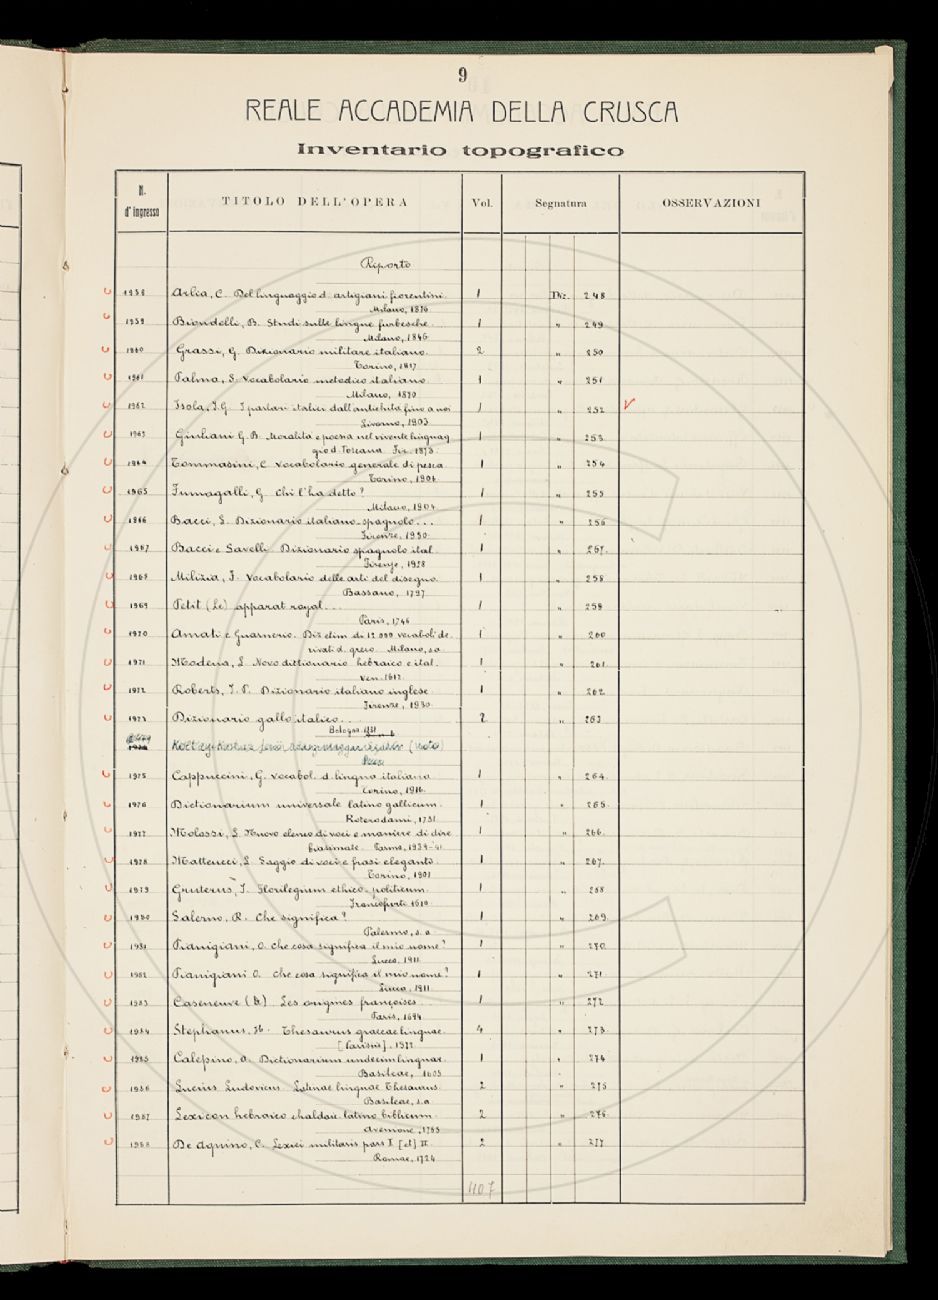 9
REALE ACCADEMIA DELLA CRUSCA
Inventario topografico
N. d'ingresso TITOLO DELL'OPERA Vol. Segnatura OSSERVAZIONI
Riporto
1958 Arlia, C. Del linguaggio d. artigiani fiorentini 1 Diz. 248
Milano, 1876
1959 Biondelli, B. Studi sulle lingue furbesche. 1 " 249
Milano, 1846
1960 Grassi, G. Dizionario militare italiano. 2 " 250
Torino, 1817
1961 Palma, S. Vocabolario metodico italiano 1 " 251
Milano, 1870
1962 Isola, I.G. I parlari italici dall'antichità fino a noi 1 " 252 V
Livorno, 1903
1963 Giuliani G.B. Moralità e poesia nel vivente linguag
1 " 253
gio d. Toscana Fir. 1873
1964 Tommasini, C. Vocabolario generale di pesca 1 " 254
Torino, 1906
1965 Fumagalli, G. Chi l'ha detto? 1 " 255
Milano, 1904
1966 Bacci, L. Dizionario italiano-spagnolo... 1 " 256
Firenze, 1930
1967 Bacci e Savelli Dizionario spagnolo ital. 1 " 257.
Firenze, 1928
1968 Milizia, F. Vocabolario delle arti del disegno. 1 " 258
Bassano, 1797
1969 Petit (Le) apparat royal... 1 " 259
Paris, 1746
1970 Amati e Guarnerio. Diz etim. di 12.000 vocaboli de- 1 " 260
rivati d. greco. Milano, s.a
1971 Modena, L. Novo dittionario hebraico e ital. 1 " 261
Ven. 1612
1972 Roberts, J.P. Dizionario italiano inglese. 1 " 262
Firenze, 1930
1973 Dizionario gallo italico... 2 " 263
Bologna 1831
1974
1975 Cappuccini, G. Vocabol. d. lingua italiana 1 " 264
Torino, 1916.
1976 Dictionarium universale latino gallicum. 1 " 265
Roterodami, 1731
1977 Molossi, L. Nuovo elenco di voci e maniere di dire 1 " 266
biasimate. Parma, 1839-41
1978 Matteucci, L. Saggio di voci e frasi eleganti. 1 " 267.
Torino, 1901
1979 Gruterus, J. Florilegium ethico-politicum. 1 " 268
Francofurti 1610
1980 Salerno, R. Che significa? 1 " 269
Palermo, s.a
1981 Pianigiani, O. Che cosa significa il mio nome? 1 " 270
Lucca, 1911
1982 Pianigiani O. Che cosa significa il mio nome? 1 " 271
Lucca, 1911
1983 Caseneuve (de) Les origines françoises... 1 " 272
Paris, 1694
1984 Stephanus, H. Thesaurus graecae linguae 4 " 273
[Parisiis], 1572
1985 Calepino, A. Dictionarium undecim linguar. 1 " 274
Basileae, 1605
1986 Lucius Ludovicus. Latinae linguae Thesaurus 2 " 275
Basileae, s.a
1987 Lexicon hebraico chaldaic. latino biblicum 2 " 276
Avenione, 1765
1988 De Aquino, C. Lexici militaris pars I [et] II. 2 " 277
Romae, 1724
407